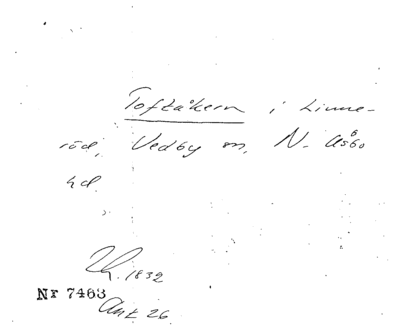 Toftåkern i Linne-
röd, Vedby sn, N. Åsbo
hd.
Uh. 1832
Nr 7463
Akt 26